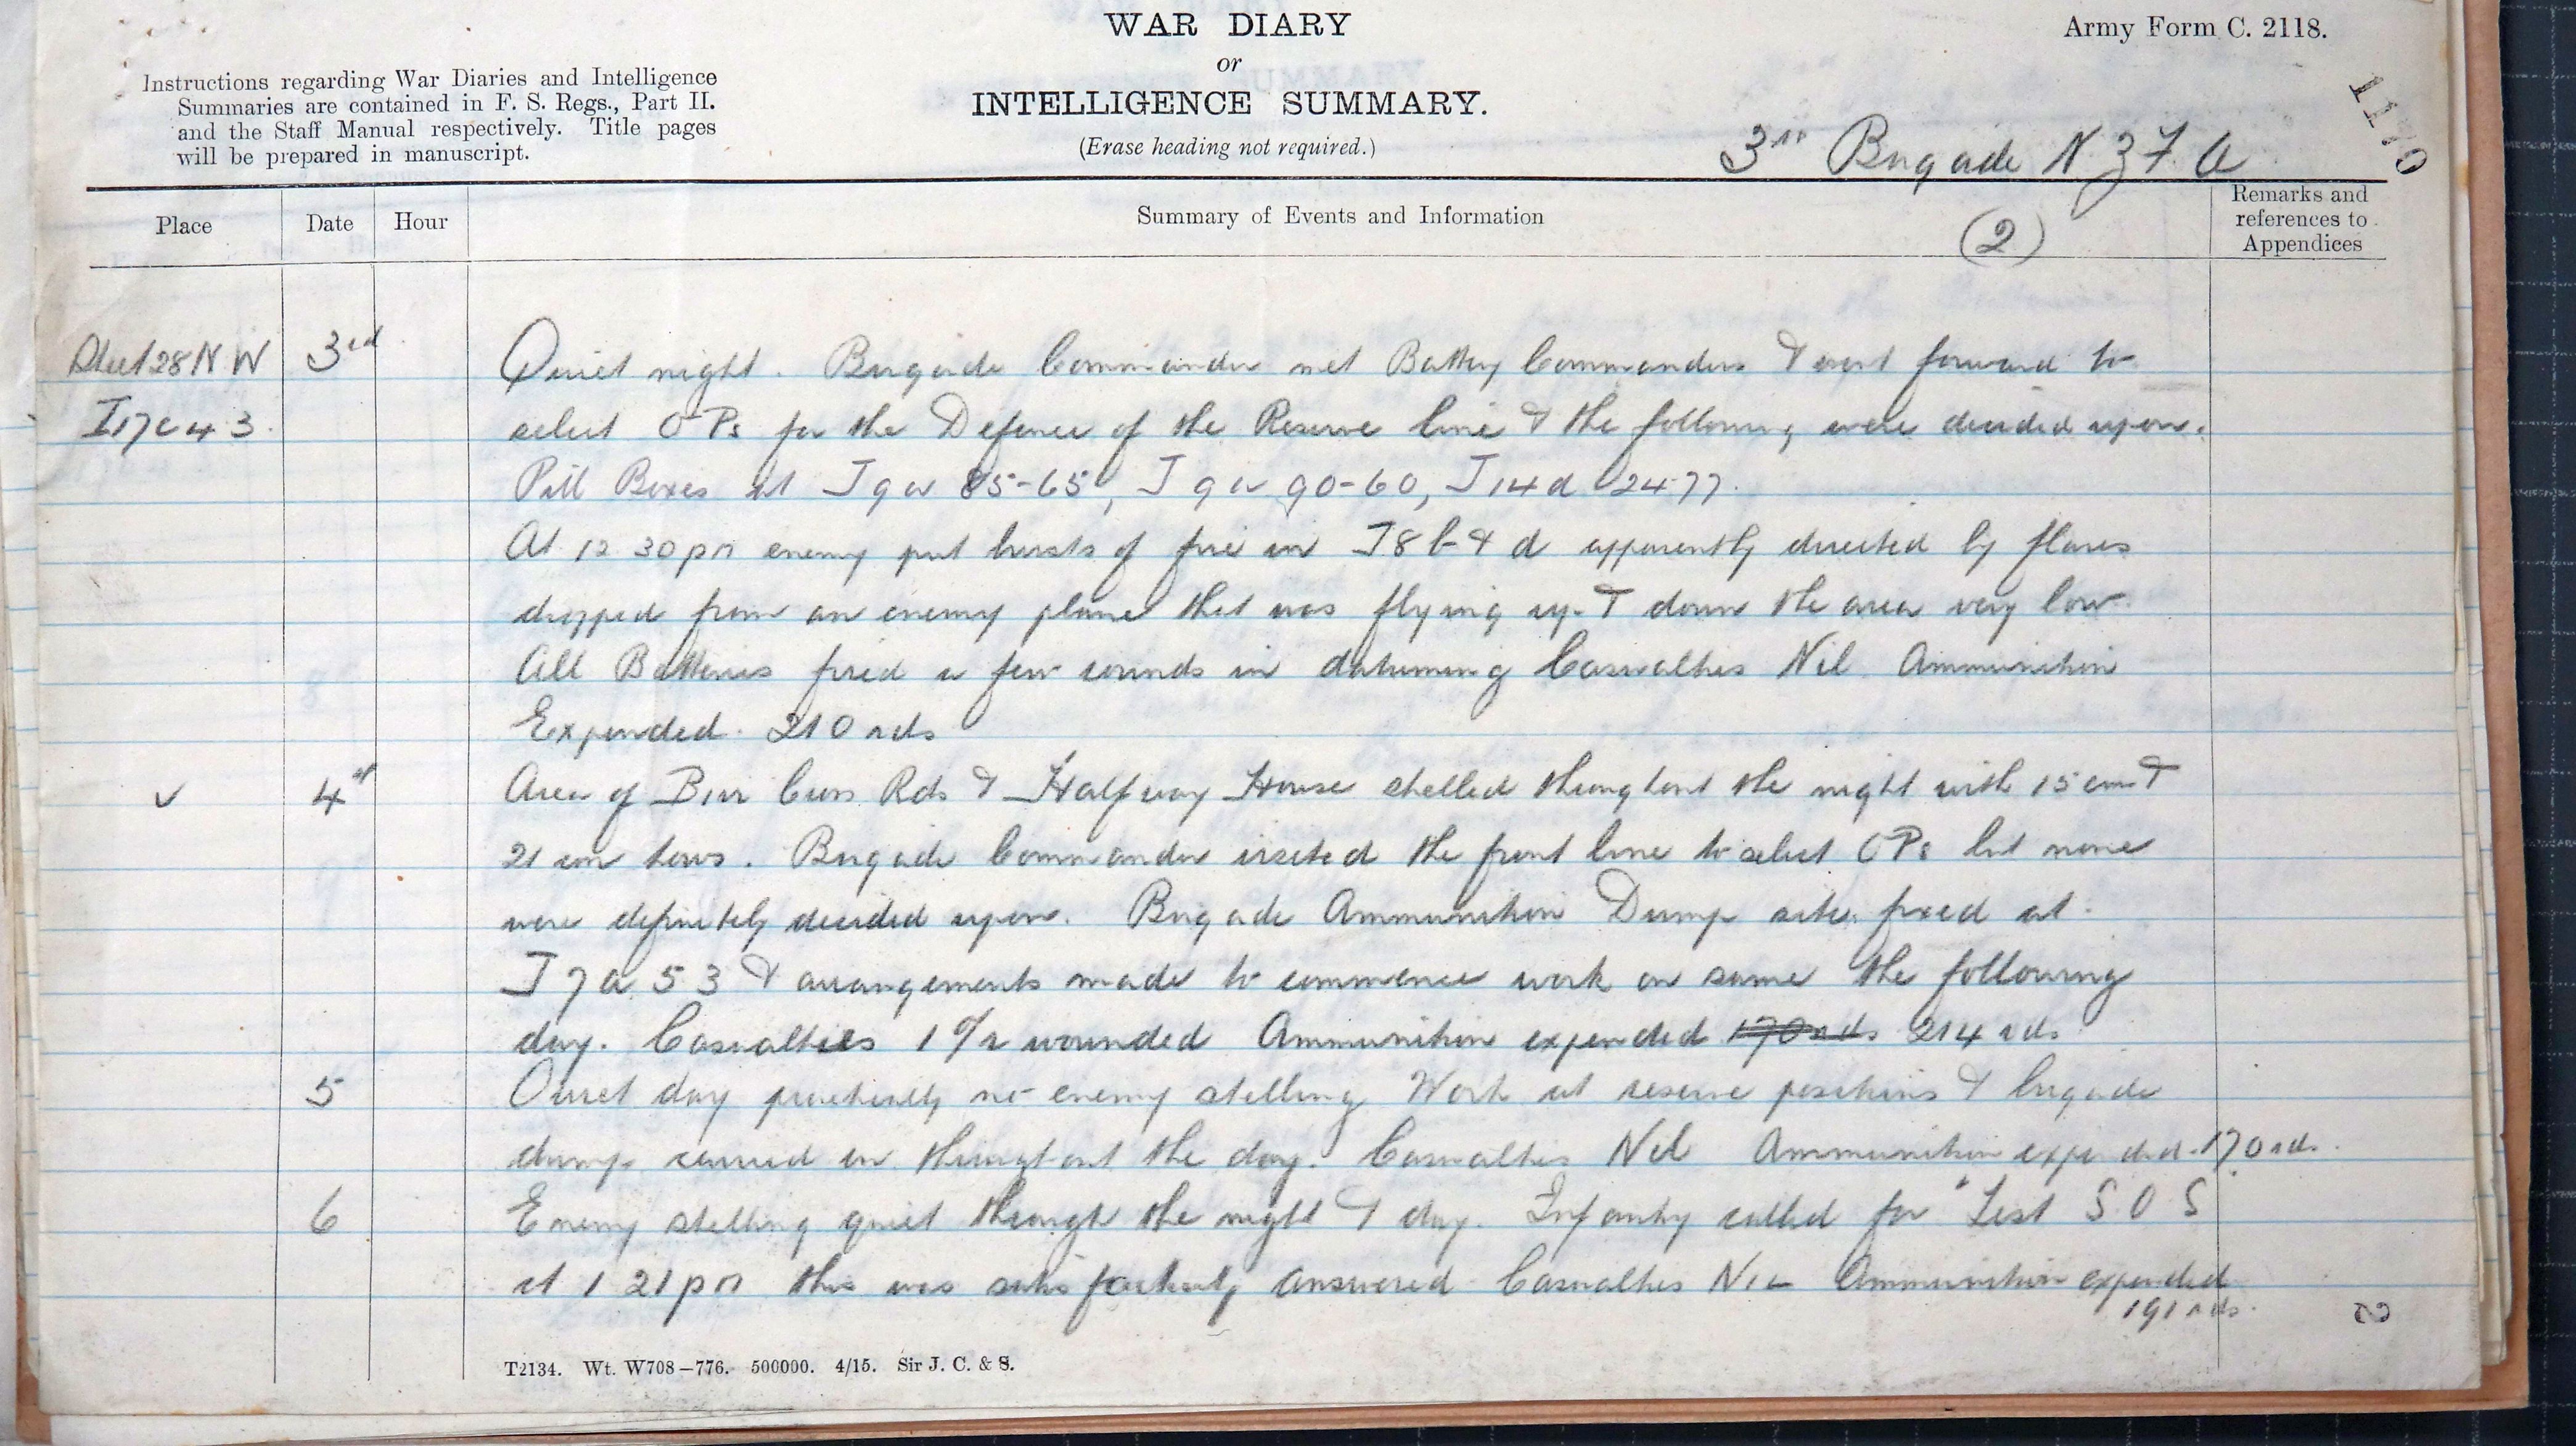 WAR DIARY
or
INTELLIGENCE SUMMARY.
(Erase heading not required.)
Army Form C. 2118.
Instructions regarding War Diaries and Intelligence
Summaries are contained in F. S. Regs., Part II.
and the Staff Manual respectively. Title pages
will be prepared in manuscript.
1170
3rd Brigade N Z F. A
Place Date Hour Summary of Events and Information (2) Remarks and references to Appendices
Sheet 28 N W 3rd Quiet night. Brigade Commander met Battery Commanders & went forward to
I17c 4 3. select O Ps for the Defence of the Reserve line & the following were decided upon.
Pill Boxes at J 9 a 85-65, J 9 a 90-60, J 14 d 24-77.
At 12 30 pm enemy put bursts of fire in J 8 b & d apparently directed by flares
dropped from an enemy plane that was flying up & down the area very low
All Batteries fired a few rounds in datuming Casualties Nil Ammunition
Expended. 210 rds
✓ 4th Area of Birr Cross Rds & Halfway House shelled throughout the night with 15 cm &
21 cm hows. Brigade Commander visited the front line to select O Ps but none
were definitely decided upon. Brigade Ammunition Dump site fixed at
J 7 a 5 3 & arrangements made to commence work on same the following
day. Casualties 1 O/R wounded Ammunition expended 170 rds 214 rds
5 Quiet day practically no enemy shelling Work at reserve positions & brigade
dump carried on throughout the day. Casualties Nil Ammunition expended. 170 rds.
6 Enemy shelling quiet through the night & day. Infantry called for "Test S.O S"
at 1 21 pm this was satisfactorily answered Casualties NIL Ammunition expended
191 rds.
2
T2134. Wt. W708—776. 500000. 4/15. Sir J. C. & S.